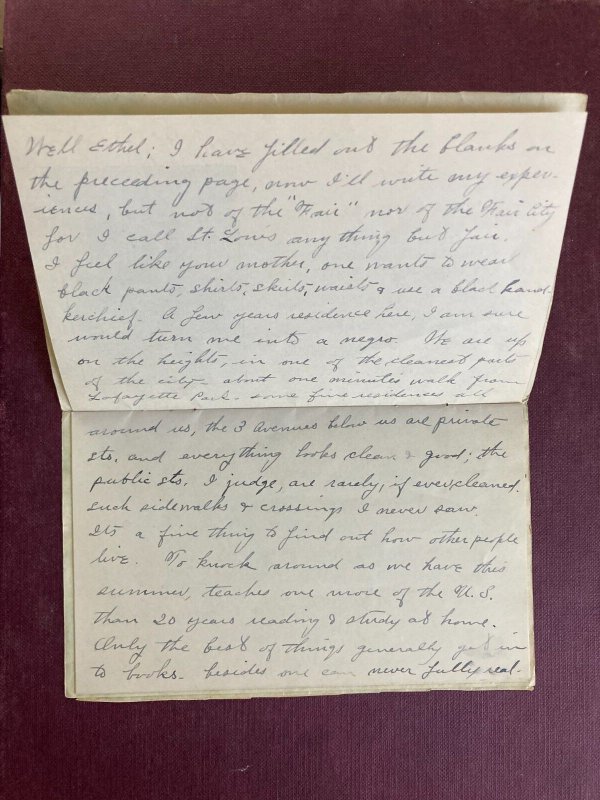 Well Ethel; I have filled out the blanks on
the preceeding page, now I'll write my exper-
iences, but not of the "Fair" nor of the Fair City
for I call St. Louis any thing but fair.
I feel like your mother, one wants to wear
black pants, shirts, skirts, waists & use a black hand-
kerchief. A few years residence here, I am sure
would turn me into a negro. We are up
on the heights, in one of the cleanest parts
of the city - about one minutes walk from
Lafayette Park - some fine residences all
around us, the 3 Avenues below us are private
sts. and everything looks clean & good; the
public sts. I judge, are rarely, if ever, cleaned.
Such sidewalks & crossings I never saw.
Its a fine thing to find out how other people
live. To knock around as we have this
summer, teaches one more of the U.S.
than 20 years reading & study at home.
Only the best of things generally get in
to books - besides one can never fully real-